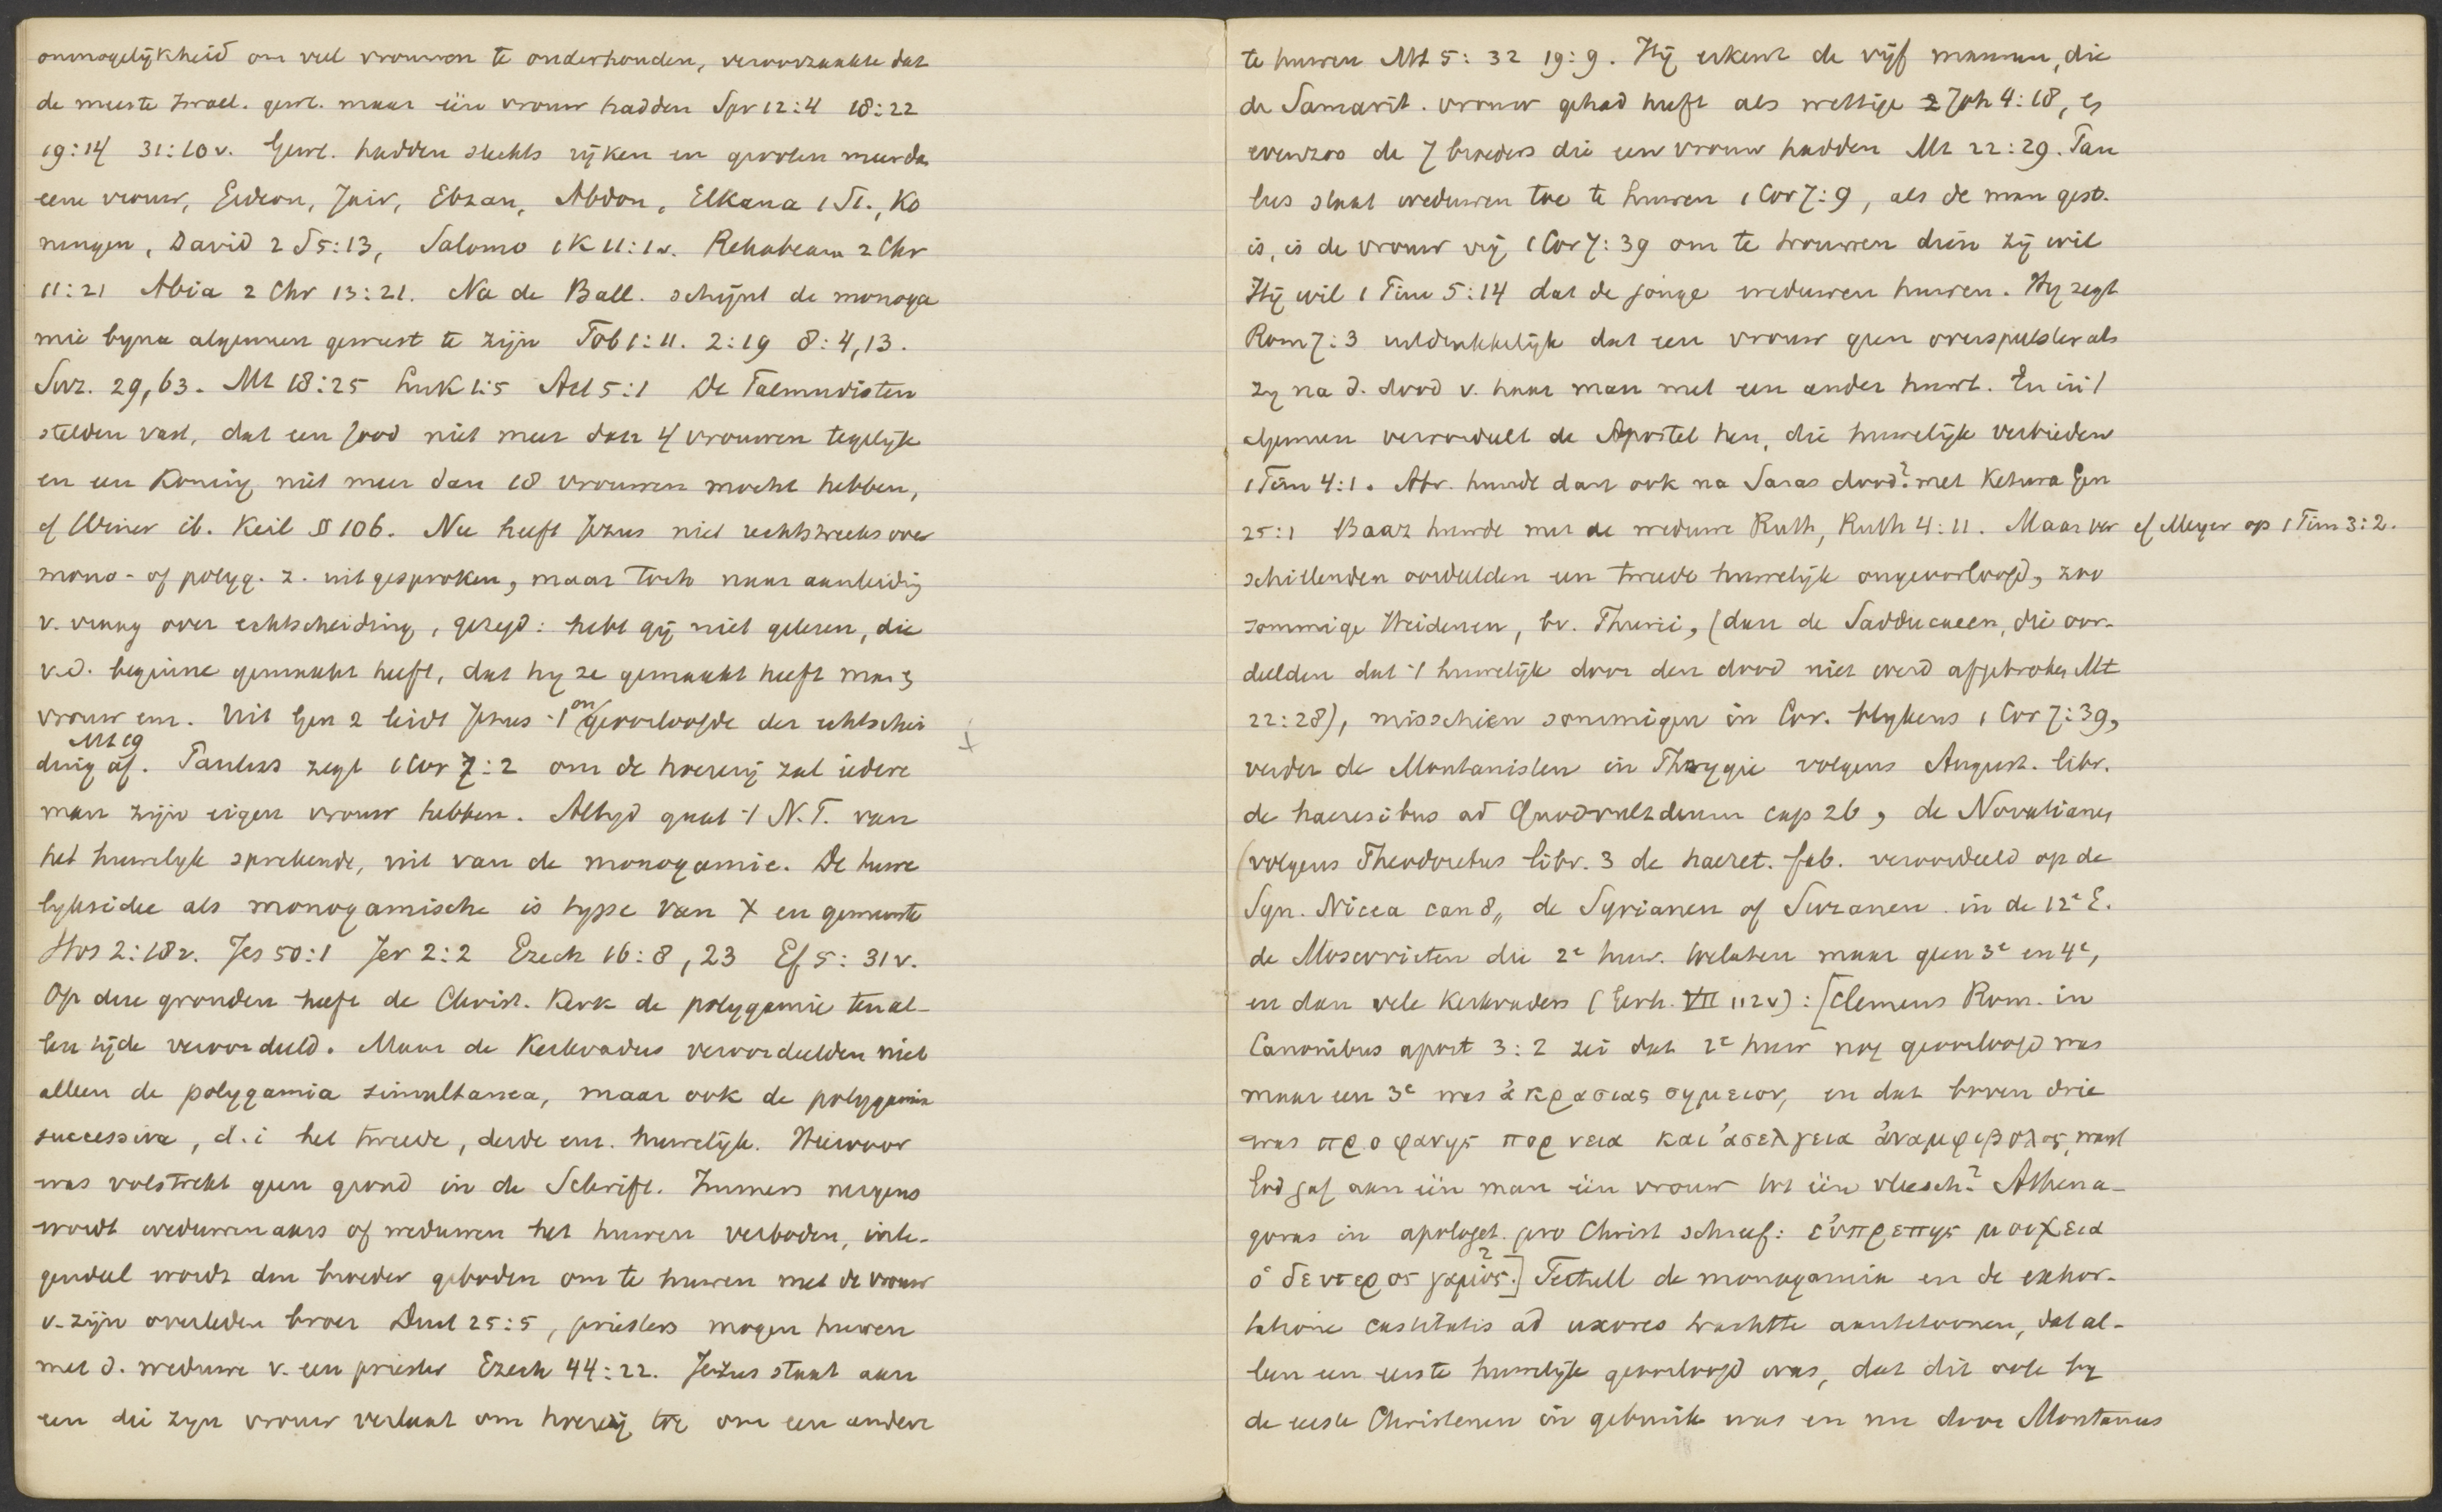 onmogelijkheid om veel vrouwen te onderhouden, veroorzaakte dat
de meeste Israel. gewl. maar één vrouw hadden Spr 12:4 18:22
19:14 31:10 v. Gewl. hadden slechts rijken en grooten meer dan
eene vrouw, Gideon, Jair, Ebzan, Abdon, Elkana 1 S 1., Ko
ningen, David 2 S 5:13, Salomo 1 K 11:1 v. Rehabeam 2 Chr
11:21 Abia 2 Chr 13:21. Na de Ball. schijnt de monoga
mie byna algemeen geweest te zijn Tob 1:11. 2:19 8:4,13.
Suz. 29, 63. Mt 18:25 Luk 1:5 Act 5:1 De Talmudisten
stelden vast, dat een Jood niet meer dan 4 vrouwen tegelijk
en een Koning niet meer dan 18 vrouwen mocht hebben,
cf Winer ib. Keil § 106. Nu heeft Jezus niet rechtstreeks over
mono- of polyg. z. uitgesproken, maar toch naar aanleiding
v. vraag over echtscheiding, gezegd: hebt gij niet gelezen, die
v.d. beginne gemaakt heeft, dat hy ze gemaakt heeft man &
vrouw enz. Uit Gen 2 leidt Jezus 't on geoorloofde der echtschei
Mt 19
ding af. Paulus zegt 1 Cor 7:2 om de hoererij zal iedere
man zijn eigen vrouw hebben. Altyd gaat 't N.T. van
het huwelyk sprekende, uit van de monogamie. De huwe
lyksidee als monogamische is type van X en gemeente
Hos 2:18 v. Jes 50:1 Jer 2:2 Ezech 16:8, 23 Ef 5:31 v.
Op deze gronden heeft de Christ. Kerk de polygamie ten al-
len tijde veroordeeld. Maar de Kerkvaders veroordeelden niet
alleen de polygamia simultanea, maar ook de polygamia
successiva, d.i het tweede, derde enz. huwelijk. Hiervoor
was volstrekt geen grond in de Schrift. Immers nergens
wordt weduwenaars of weduwen het huwen verboden, inte-
gendeel wordt den broeder geboden om te huwen met de vrouw
v. zijn overleden broer Deut 25:5, priesters mogen huwen
met d. weduwe v. een priester Ezech 44:22. Jezus staat aan
een die zyn vrouw verlaat om hoererij toe om een andere
te huwen Mt 5:32 19:9. Hij erkent de vijf mannen, die
de Samarit. vrouw gehad heeft als wettige Joh 4:18, &
evenzoo de 7 broeders die een vrouw hadden Mt 22:29. Pau
lus staat weduwen toe te huwen 1 Cor 7:9, als de man gest.
is, is de vrouw vrij 1 Cor 7:39 om te trouwen dien zij wil
Hij wil 1 Tim 5:14 dat de jonge weduwen huwen. Hy zegt
Rom 7:3 uitdrukkelijk dat een vrouw geen overspeelster als
zy na d. dood v. haar man met een ander huwt. En in 't
algemeen veroordeelt de Apostel hen, die huwelijk verbieden
1 Tim 4:1. Abr. huwde dan ook na Saras dood? met Ketura Gen
25:1 Boaz huwde met de weduwe Ruth, Ruth 4:11. Maar ver cf Meyer op 1 Tim 3:2.
schillenden oordeelden een tweede huwelijk ongeoorloofd, zoo
sommige Heidenen, bv. Thurii, (dan de Sadduceen, die oor-
deelden dat 't huwelijk door den dood niet werd afgebroken Mt
22:28), misschien sommigen in Cor. blykens 1 Cor 7:39,
verder de Montanisten in Phrygie volgens August. libr.
de haeresibus ad Quodvultdeum cap 26, de Novatianen
(volgens Theodoretus libr. 3 de haeret. fab. veroordeeld op de
Syn. Nicea can 8,, de Syrianen of Suzanen in de 12e E.
de Moscovieten die 2e huw. toelaten maar geen 3e en 4e,
en dan vele Kerkvaders (Gerh. VII 112 v): [Clemens Rom. in
Canonibus apost 3:2 zei dat 2e huw nog geoorloofd was
maar een 3e was ἀκρασιας σημειον, en dat boven drie
was προφανης πορνεια και ἀσελγεια ἀναμφιβολος, want
God gaf aan één man één vrouw tot één vleesch? Athena-
goras in apologet. pro Christ schreef: εὐπρεπης μοιχεια
ὁ δευτερος γαμος.?] Tertull de monogamia en de exhor-
tatione castitatis ad uxores trachtte aantetoonen, dat al-
leen een eerste huwelijk geoorloofd was, dat dit ook by
de eerste Christenen in gebruik was en nu door Montanus